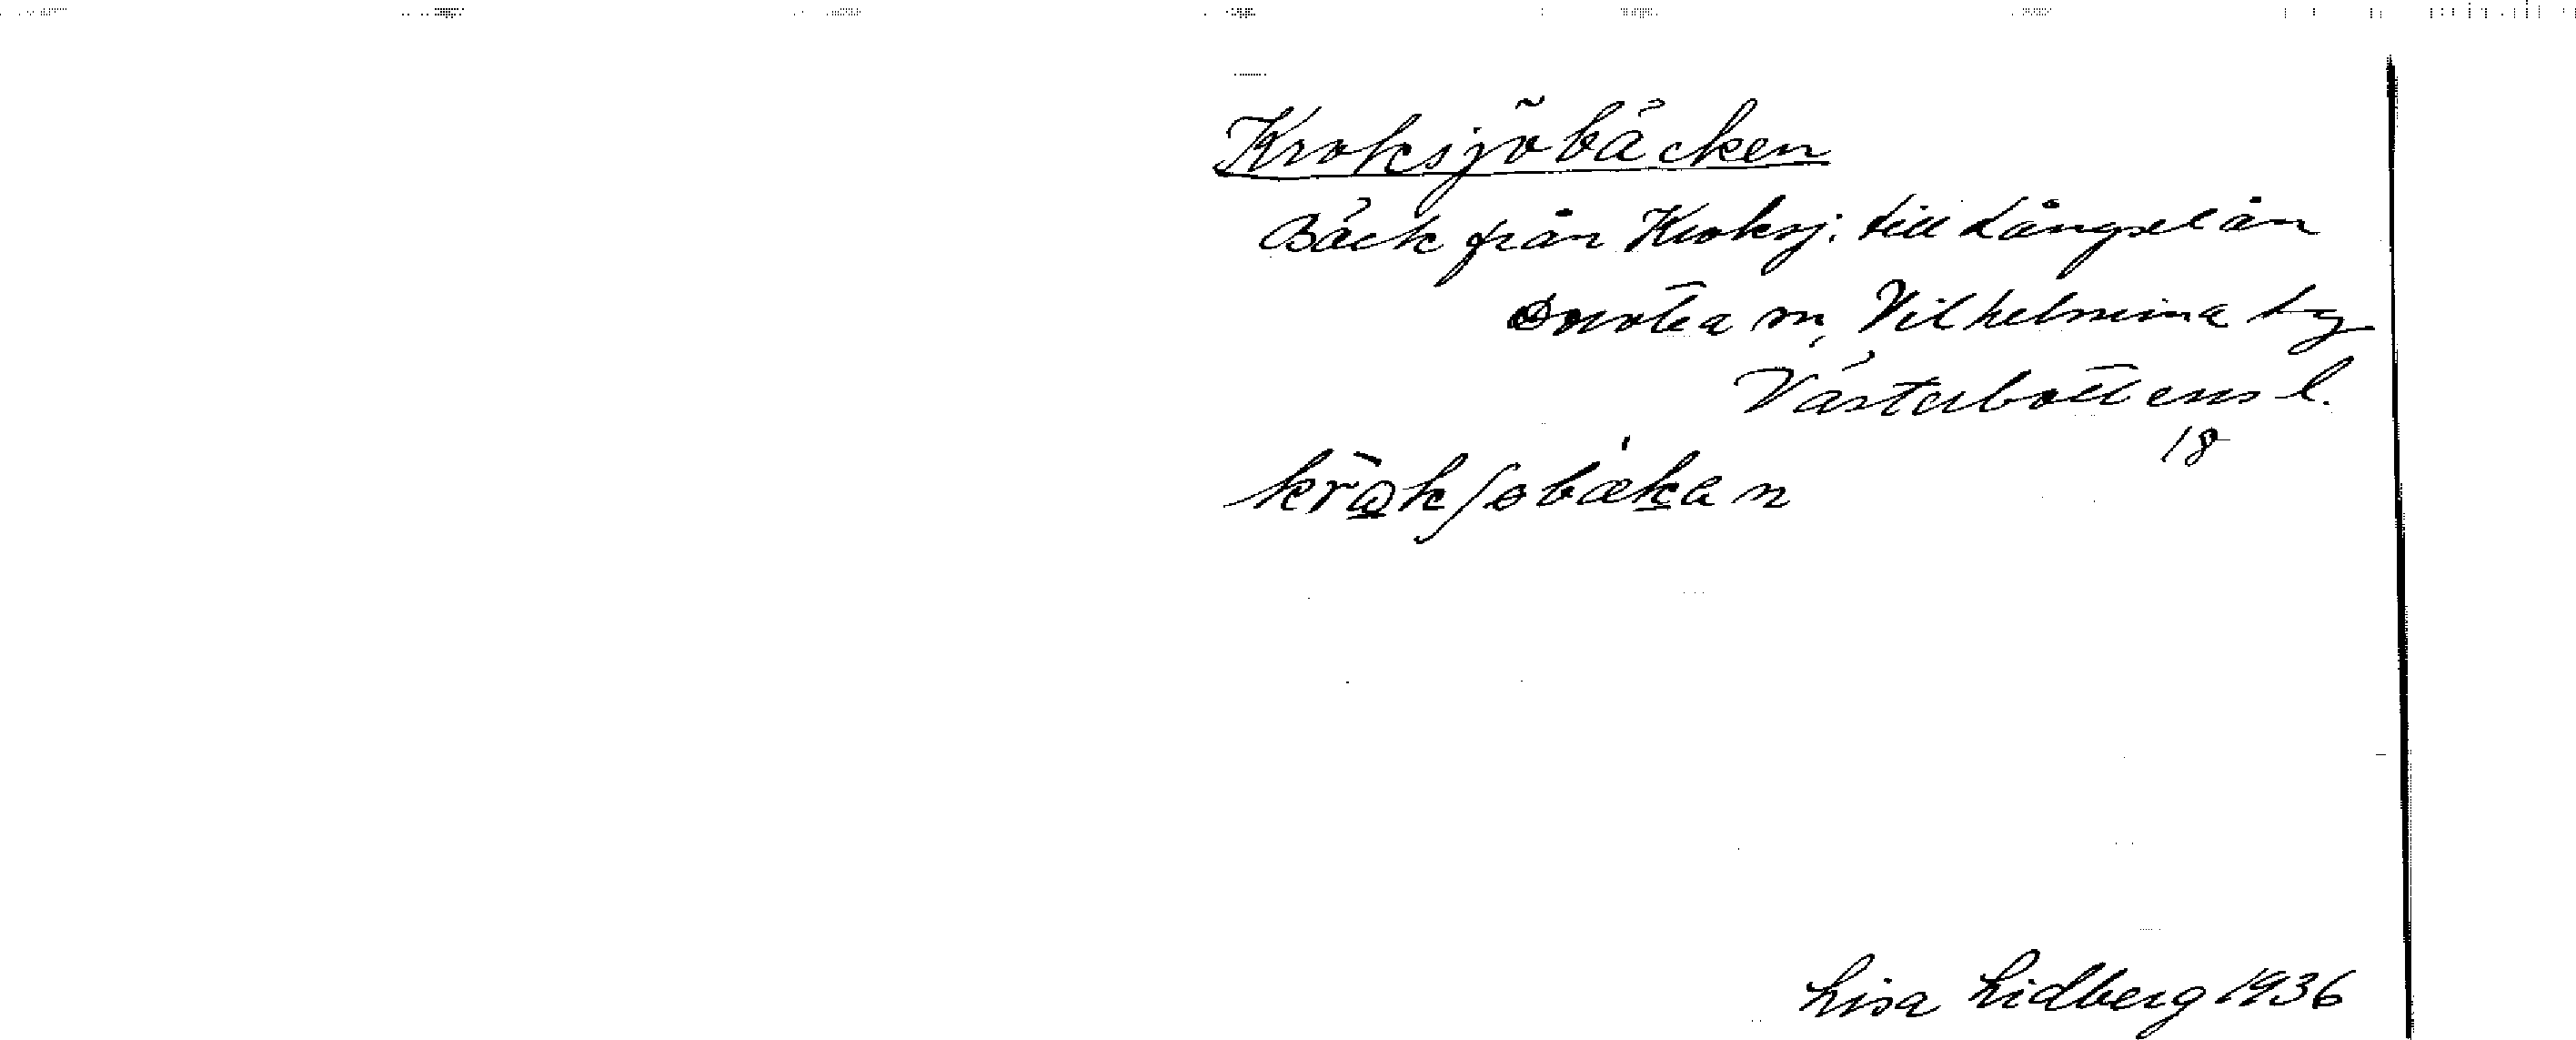 Kroksjöbäcken
Bäck från Kroksj. till Långselån
Dorotea sn, Vilhelmina tg
Västerbottens l.
18
Lisa Lidberg 1936